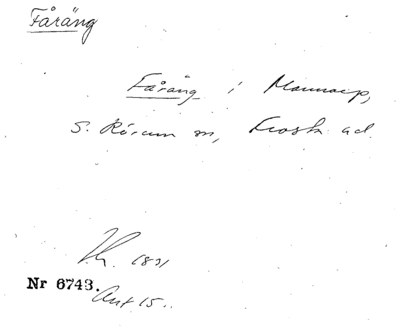 Fåräng
Fåräng i Mannarp,
S. Rörum sn, Frosta hd.
1831
Nr 6743.
Akt 15.